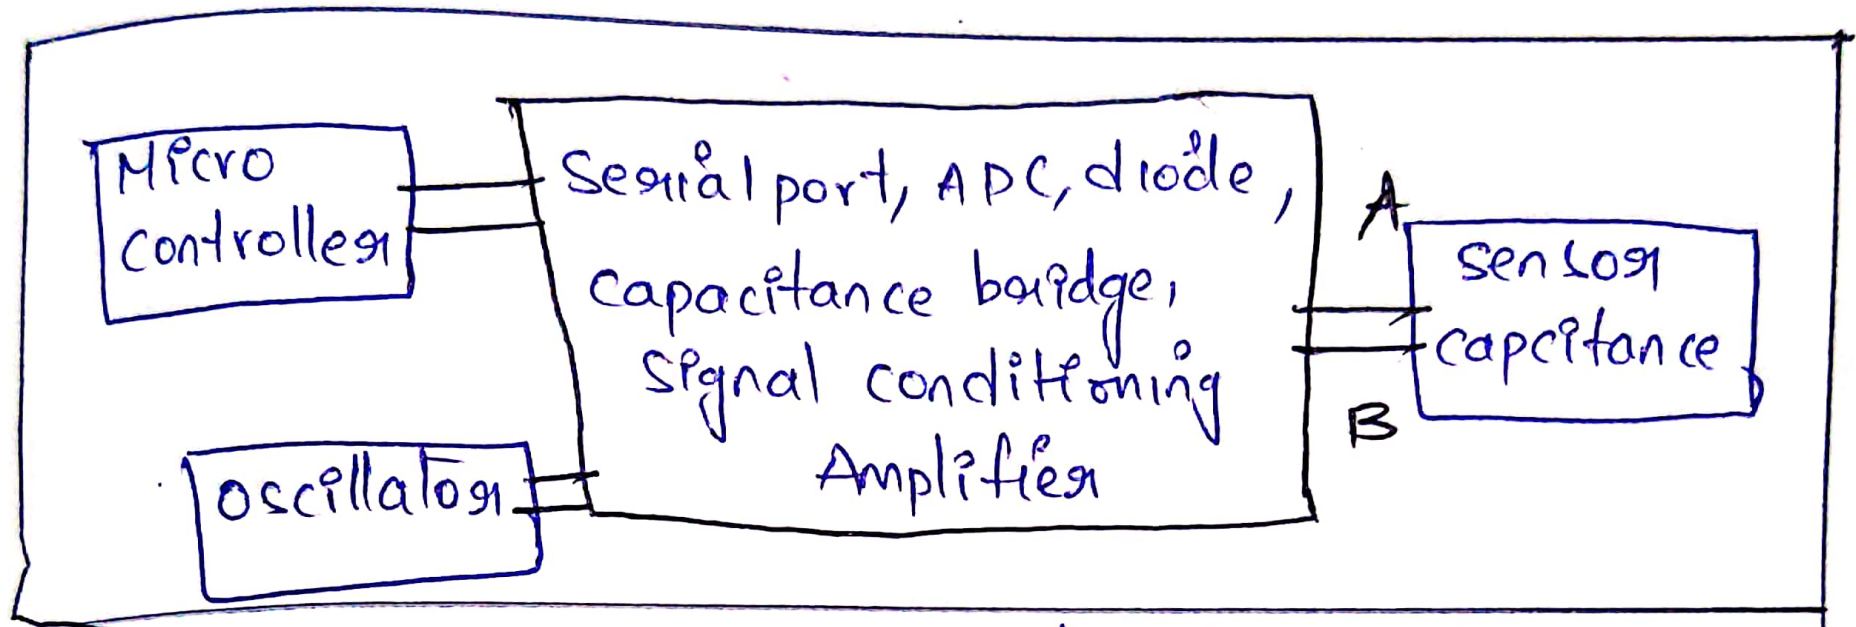 Micro
controller
Serial port, ADC, diode,
capacitance bridge,
signal conditioning
Amplifier
oscillator
A
sensor
capcitance
B